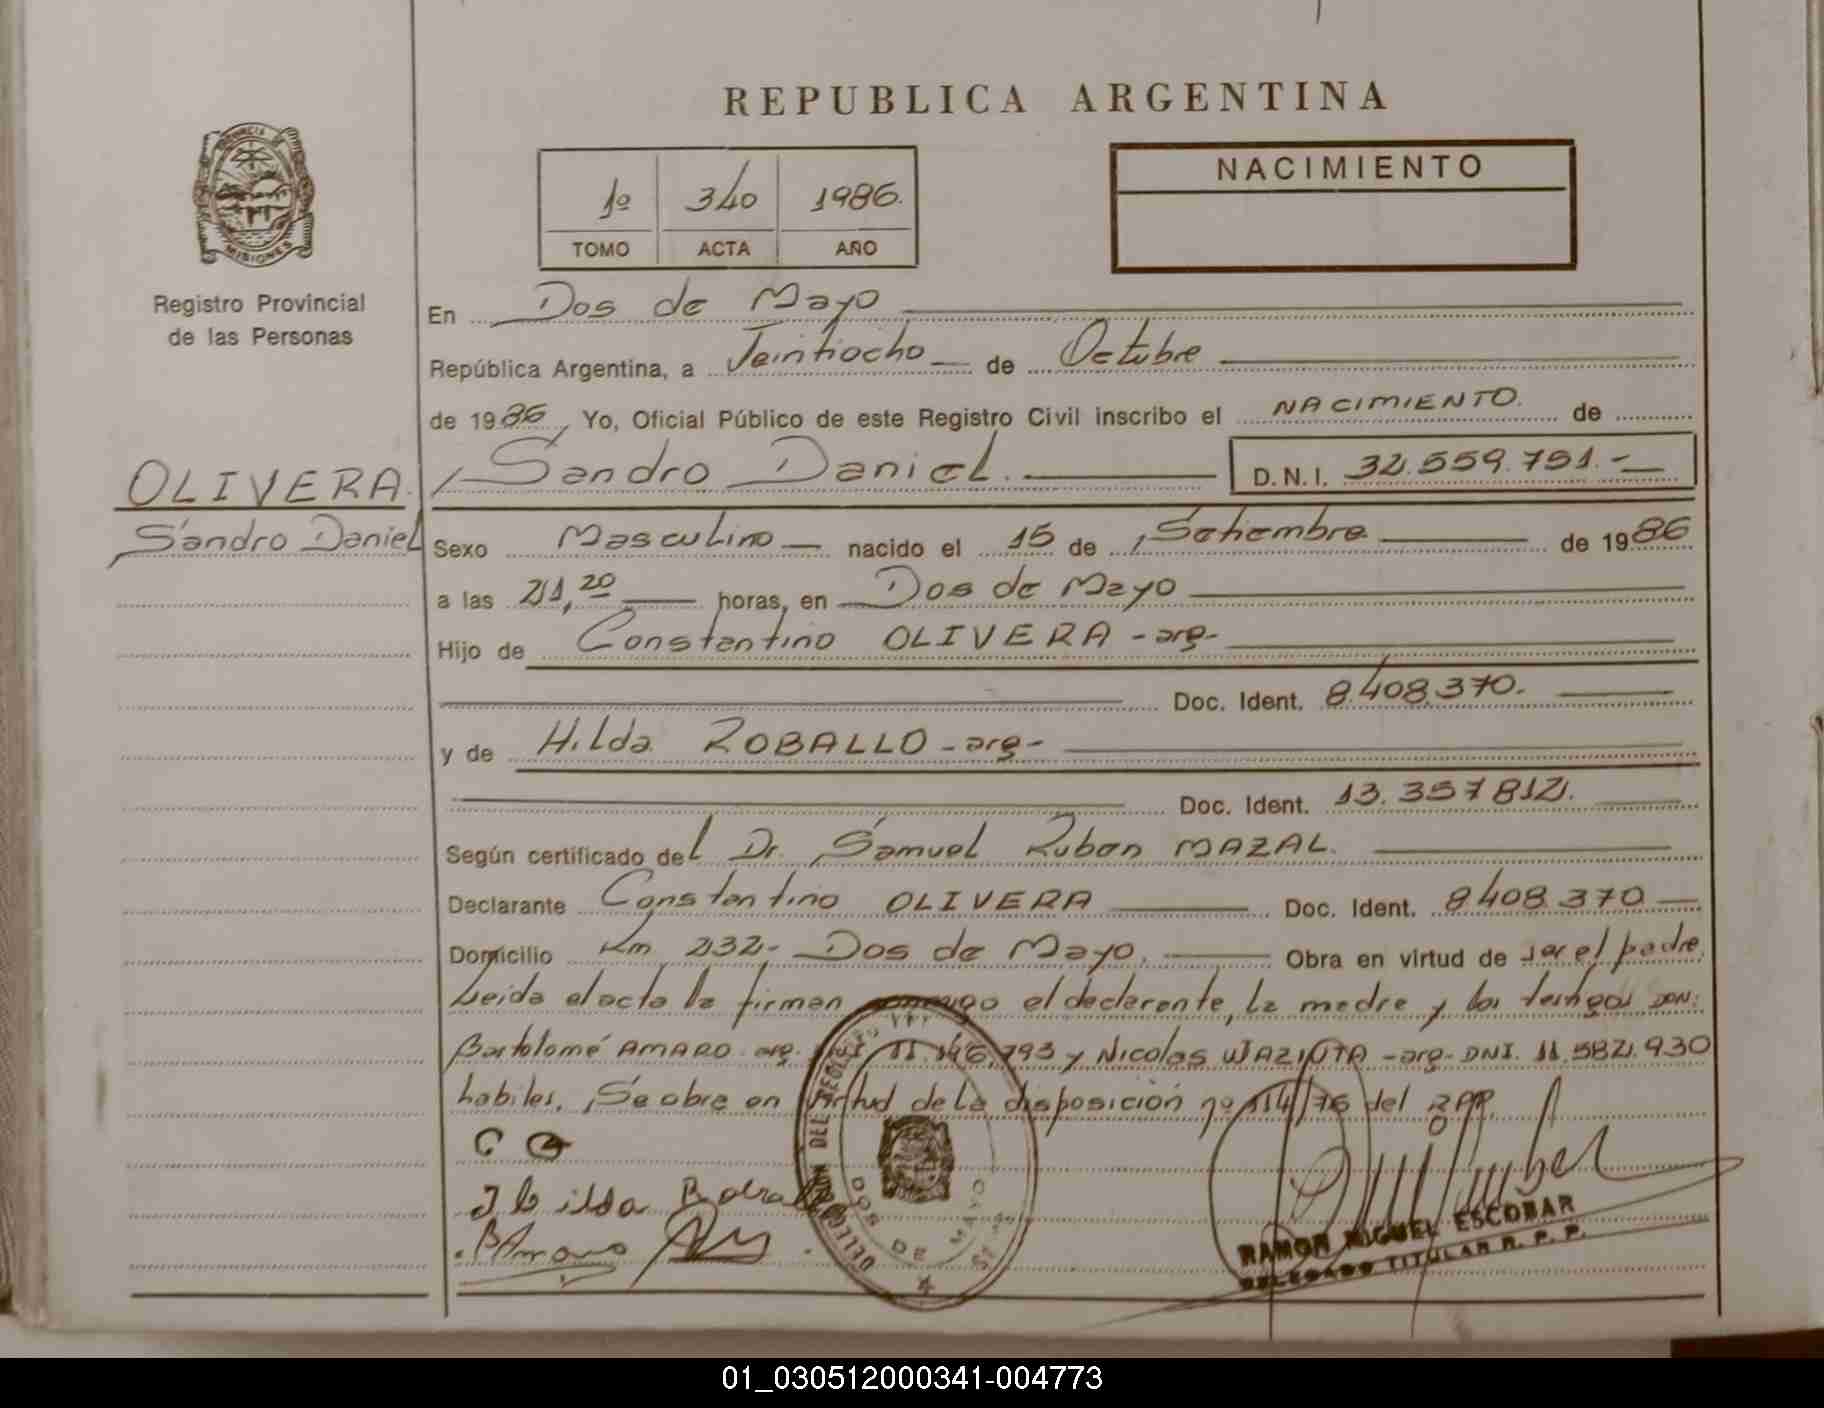 REPUBLICA ARGENTINA
PROVINCIA DE
MISIONES
Registro Provincial
de las Personas
1º 340 1986.
TOMO ACTA AÑO
NACIMIENTO
En Dos de Mayo
República Argentina, a Veintiocho de Octubre
de 1986, Yo, Oficial Público de este Registro Civil inscribo el NACIMIENTO. de
OLIVERA.
Sandro Daniel
Sandro Daniel. D.N.I. 32.559.751.-
Sexo Masculino nacido el 15 de Setiembre de 1986
a las 21,20 horas, en Dos de Mayo
Hijo de Constantino OLIVERA - arg-
Doc. Ident. 8.408.370.
y de Hilda ROBALLO - arg-
Doc. Ident. 13.357812.
Según certificado del Dr. Samuel Ruben MAZAL.
Declarante Constantino OLIVERA Doc. Ident. 8408.370
Domicilio Km 232,- Dos de Mayo. Obra en virtud de ser el padre.
Leida el acta la firman conmigo el declarante, la madre y los testigos DON:
Bartolomé AMARO arg. 11.146.793 y Nicolas WAZIUTA - arg- DNI. 11.582.930
habiles. Se obra en virtud de la disposición nº 114/76 del RPP.
C O
BAmaro
DOS DE MAYO
RAMON MIGUEL ESCOBAR
DELEGADO TITULAR R. P. P.
01_030512000341-004773